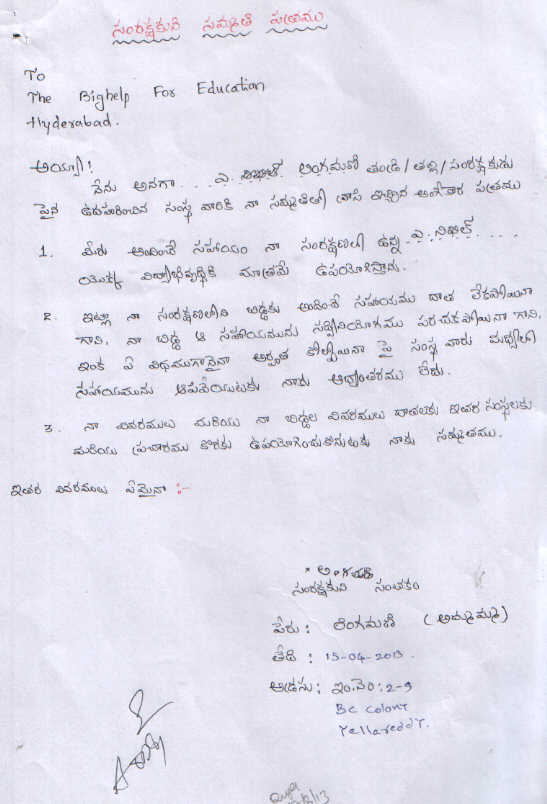 సంరక్షకుని సమ్మతి పత్రము
To
The Bighelp For Education
Hyderabad.
అయ్యా!
నేను అనగా .... ఎ. నిఖిల్ లింగమణి తండ్రి/తల్లి/సంరక్షకుడు
పైన ఉదహరించిన సంస్థ వారికి నా సమ్మతితో వ్రాసి ఇచ్చిన అంగీకార పత్రము
1. మీరు అందించే సహాయం నా సంరక్షణలో ఉన్న ఎ. నిఖిల్ ....
యొక్క విద్యాభివృద్ధికి మాత్రమే ఉపయోగిస్తాను.
2. ఇట్లా నా సంరక్షణలోని బిడ్డకు అందించే సహాయము దాత లేకపోయినా
గాని, నా బిడ్డ ఆ సహాయమును సద్వినియోగము పరచకపోయినా గాని,
ఇంక ఏ విధముగానైనా అర్హత కోల్పోయినా పై సంస్థ వారు మధ్యలో
సహాయమును ఆపివేయుటకు నాకు అభ్యంతరము లేదు.
3. నా వివరములు మరియు నా బిడ్డల వివరములు దాతలకు ఇతర సంస్థలకు
మరియు ప్రచారము కొరకు ఉపయోగించుకొనుటకు నాకు సమ్మతము.
ఇతర వివరములు ఏమైనా :-
సంరక్షకుని సంతకం
పేరు : లింగమణి (అమ్మమ్మ)
తేది : 15-04-2013.
అడ్రసు : ఇం.నెం : 2-9
BC colony
Yellareddy.